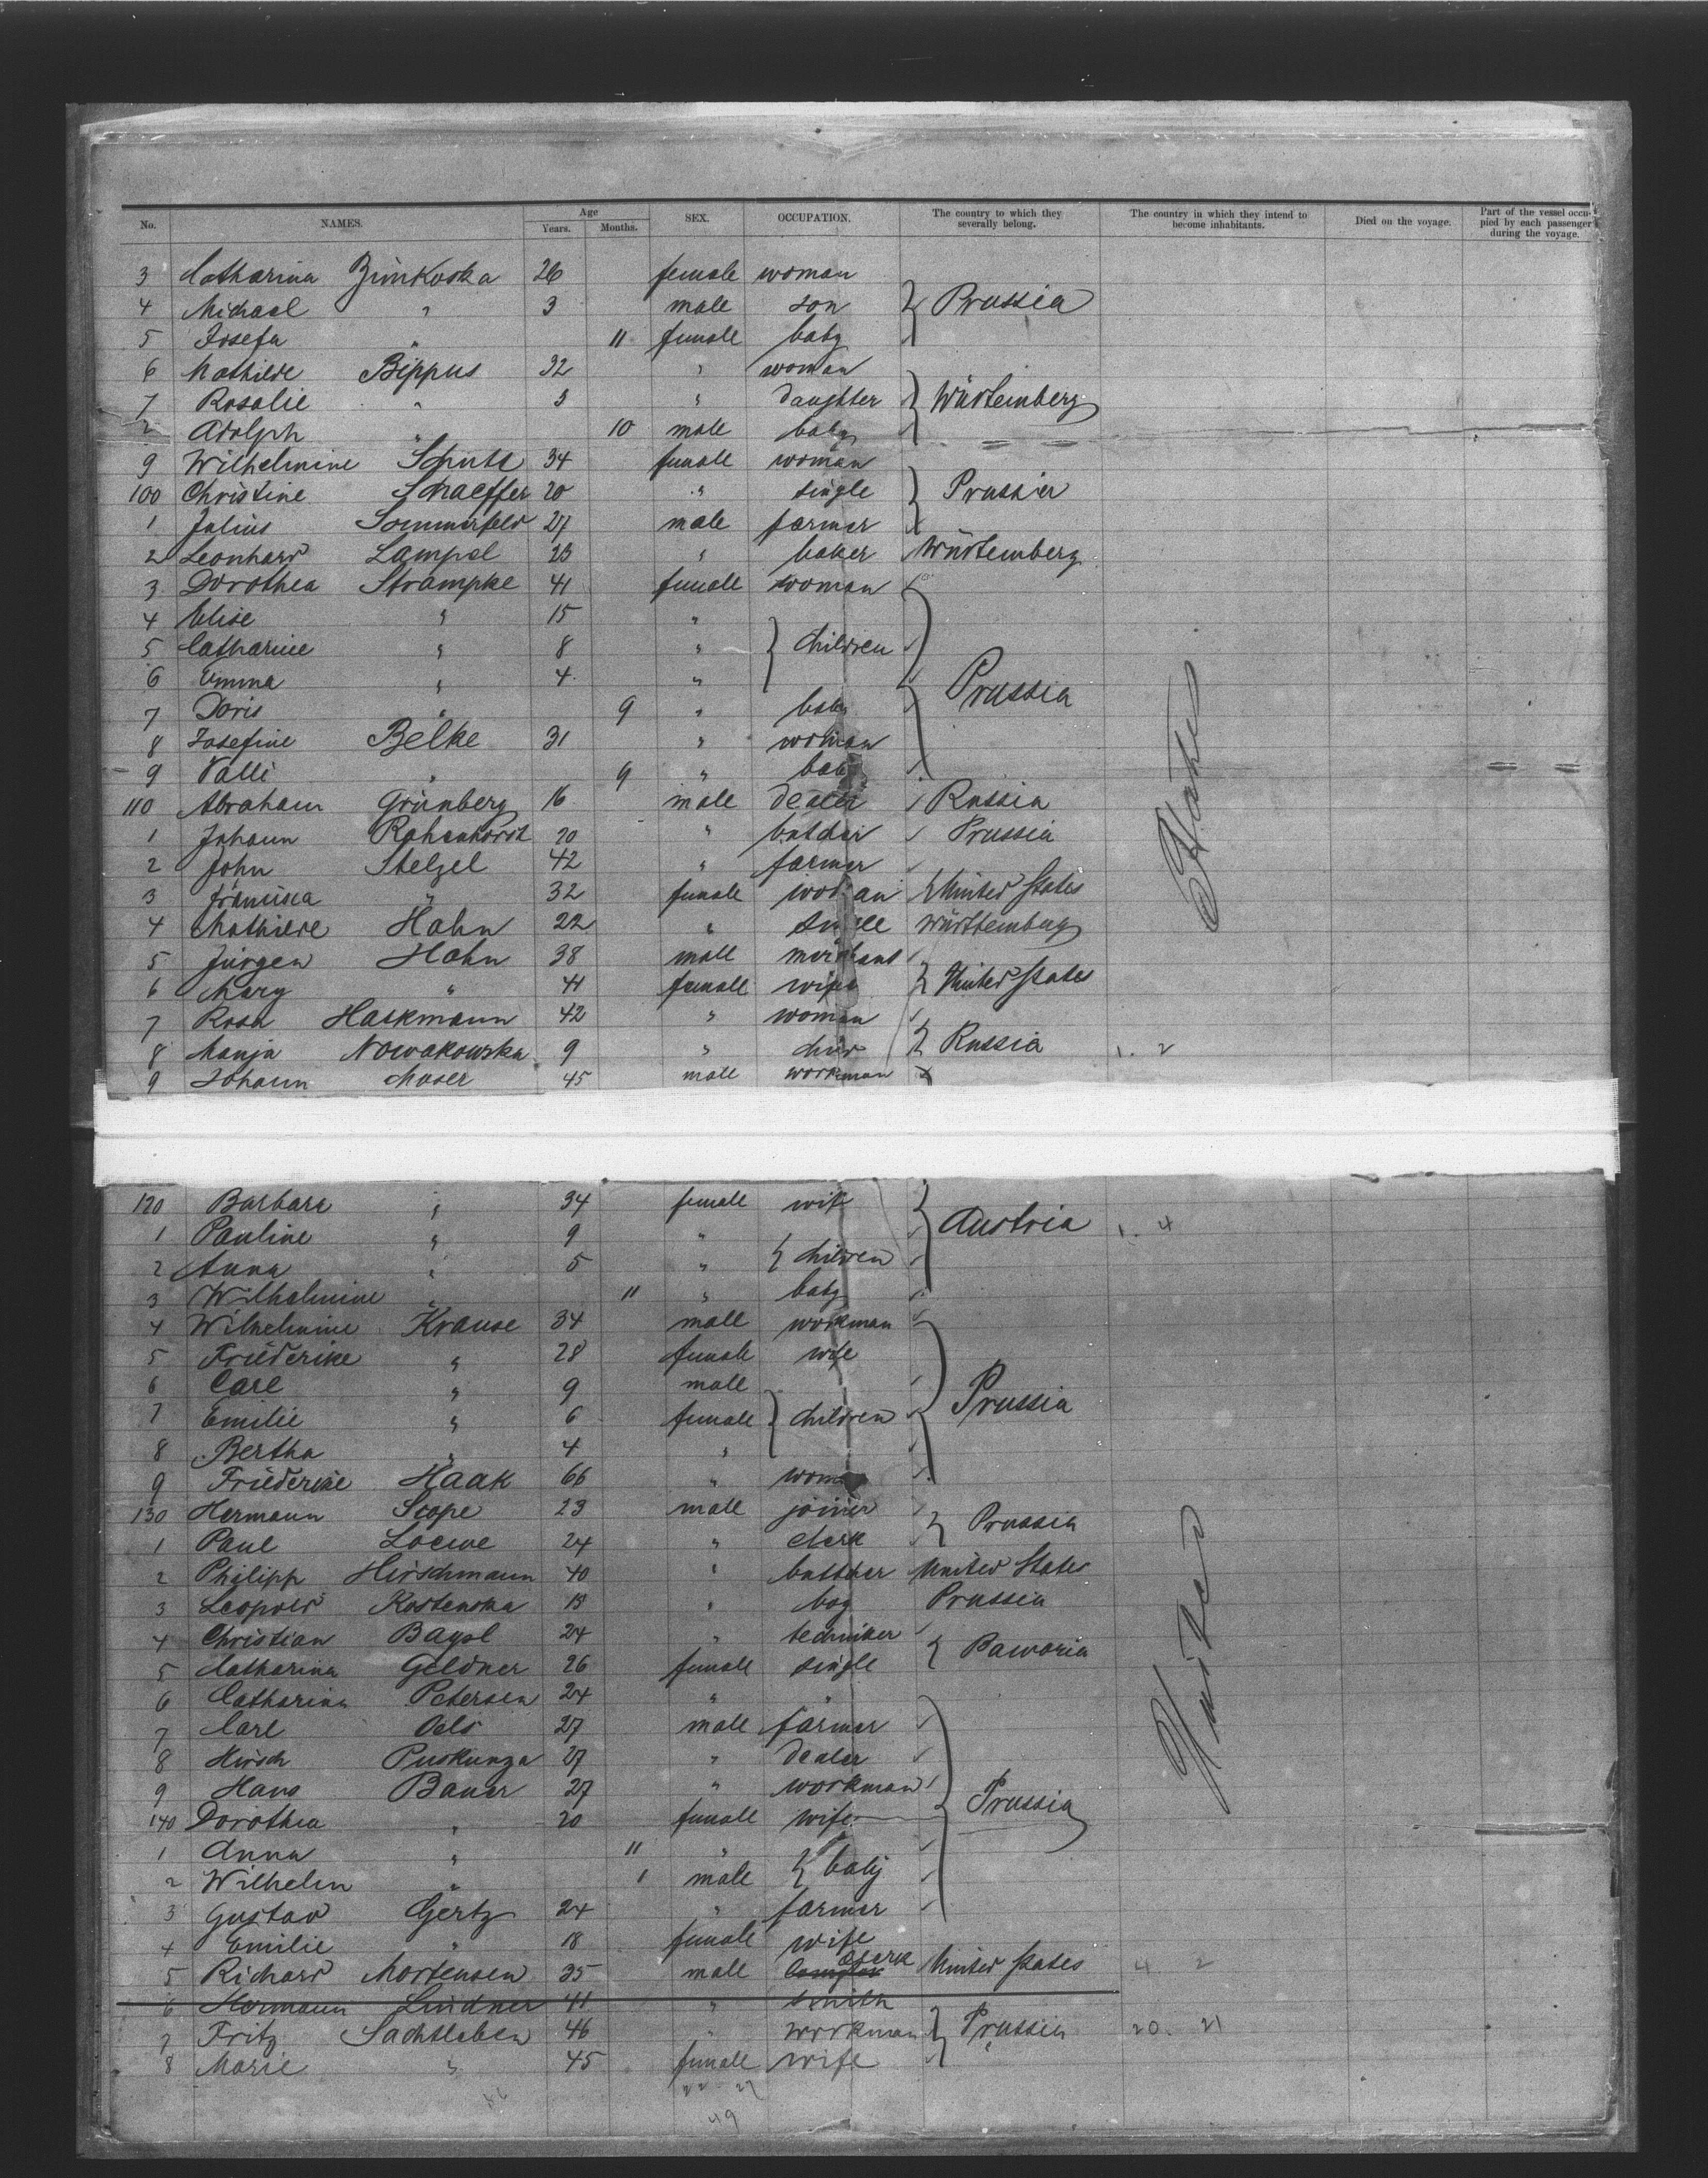 No. NAMES. Age Years. Months. SEX. OCCUPATION. The country to which they severally belong. The country in which they intend to become inhabitants. Died on the voyage. Part of the vessel occupied by each passenger during the voyage.
3 Catharina Zimkoska 26 female woman
4 Michael " 3 male son } Prussia
5 Josefa " 11 female baby
6 Mathilde Bippus 32 " woman
7 Rosalie " 3 " daughter } Würtemberg
Adolph " 10 male baby
9 Wilhelmine Schutz 34 female woman
100 Christine Schaeffer 20 " single } Prussia
1 Julius Sommerfeld 27 male farmer
2 Leonhard Lampel 23 " baker Würtemberg
3 Dorothea Strampke 41 female woman
4 Elise " 15 "
5 Catharine " 8 " } children
6 Emma " 4 " Prussia
7 Doris " 9 " baby
8 Josefine Belke 31 " woman
9 Valli " 9 " baby
110 Abraham Grünberg 16 male dealer Russia
1 Johann Rahenhorst 20 " butcher Prussia
2 John Stelzel 42 " farmer
3 Francisca " 32 female woman } United States
4 Mathilde Hahn 22 " single Württemberg
5 Jürgen Hahn 38 male merchant
6 Mary " 41 female wife } United States
7 Rosa Haskmann 42 " woman
8 Manja Nowakowska 9 " child } Russia 1. 2
9 Johann Moser 45 male workman
120 Barbara " 34 female wife
1 Pauline " 9 " Austria 1. 4
2 Anna " 5 " } children
3 Wilhelmine " 11 " baby
4 Wilhelmine Krause 34 male workman
5 Friederike " 28 female wife
6 Carl " 9 male
7 Emilie " 6 female } children Prussia
8 Bertha " 4 "
9 Friederike Haak 66 " woman
130 Hermann Scope 23 male joiner
1 Paul Loewe 24 " clerk } Prussia
2 Philipp Hirschmann 40 " butcher United States
3 Leopold Kostenska 13 " boy Prussia
4 Christian Baysl 24 " techniker
5 Catharina Geldner 26 female single } Bawaria
6 Catharina Petersen 24 " "
7 Carl Oels 27 male farmer
8 Hirsch Puskunza 27 " dealer
9 Hans Bauer 27 " workman
140 Dorothea " 20 female wife Prussia
1 Anna " 11 "
2 Wilhelm " 1 male } baby
3 Gustav Gertz 24 " farmer
4 Emilie " 18 female wife
5 Richard Mortensen 35 male clerk United States 4 2
6 Hermann Lindner 41 " smith
7 Fritz Sachtleben 46 " workman } Prussia 20. 21
8 Marie " 45 female wife
22 27
49
United States